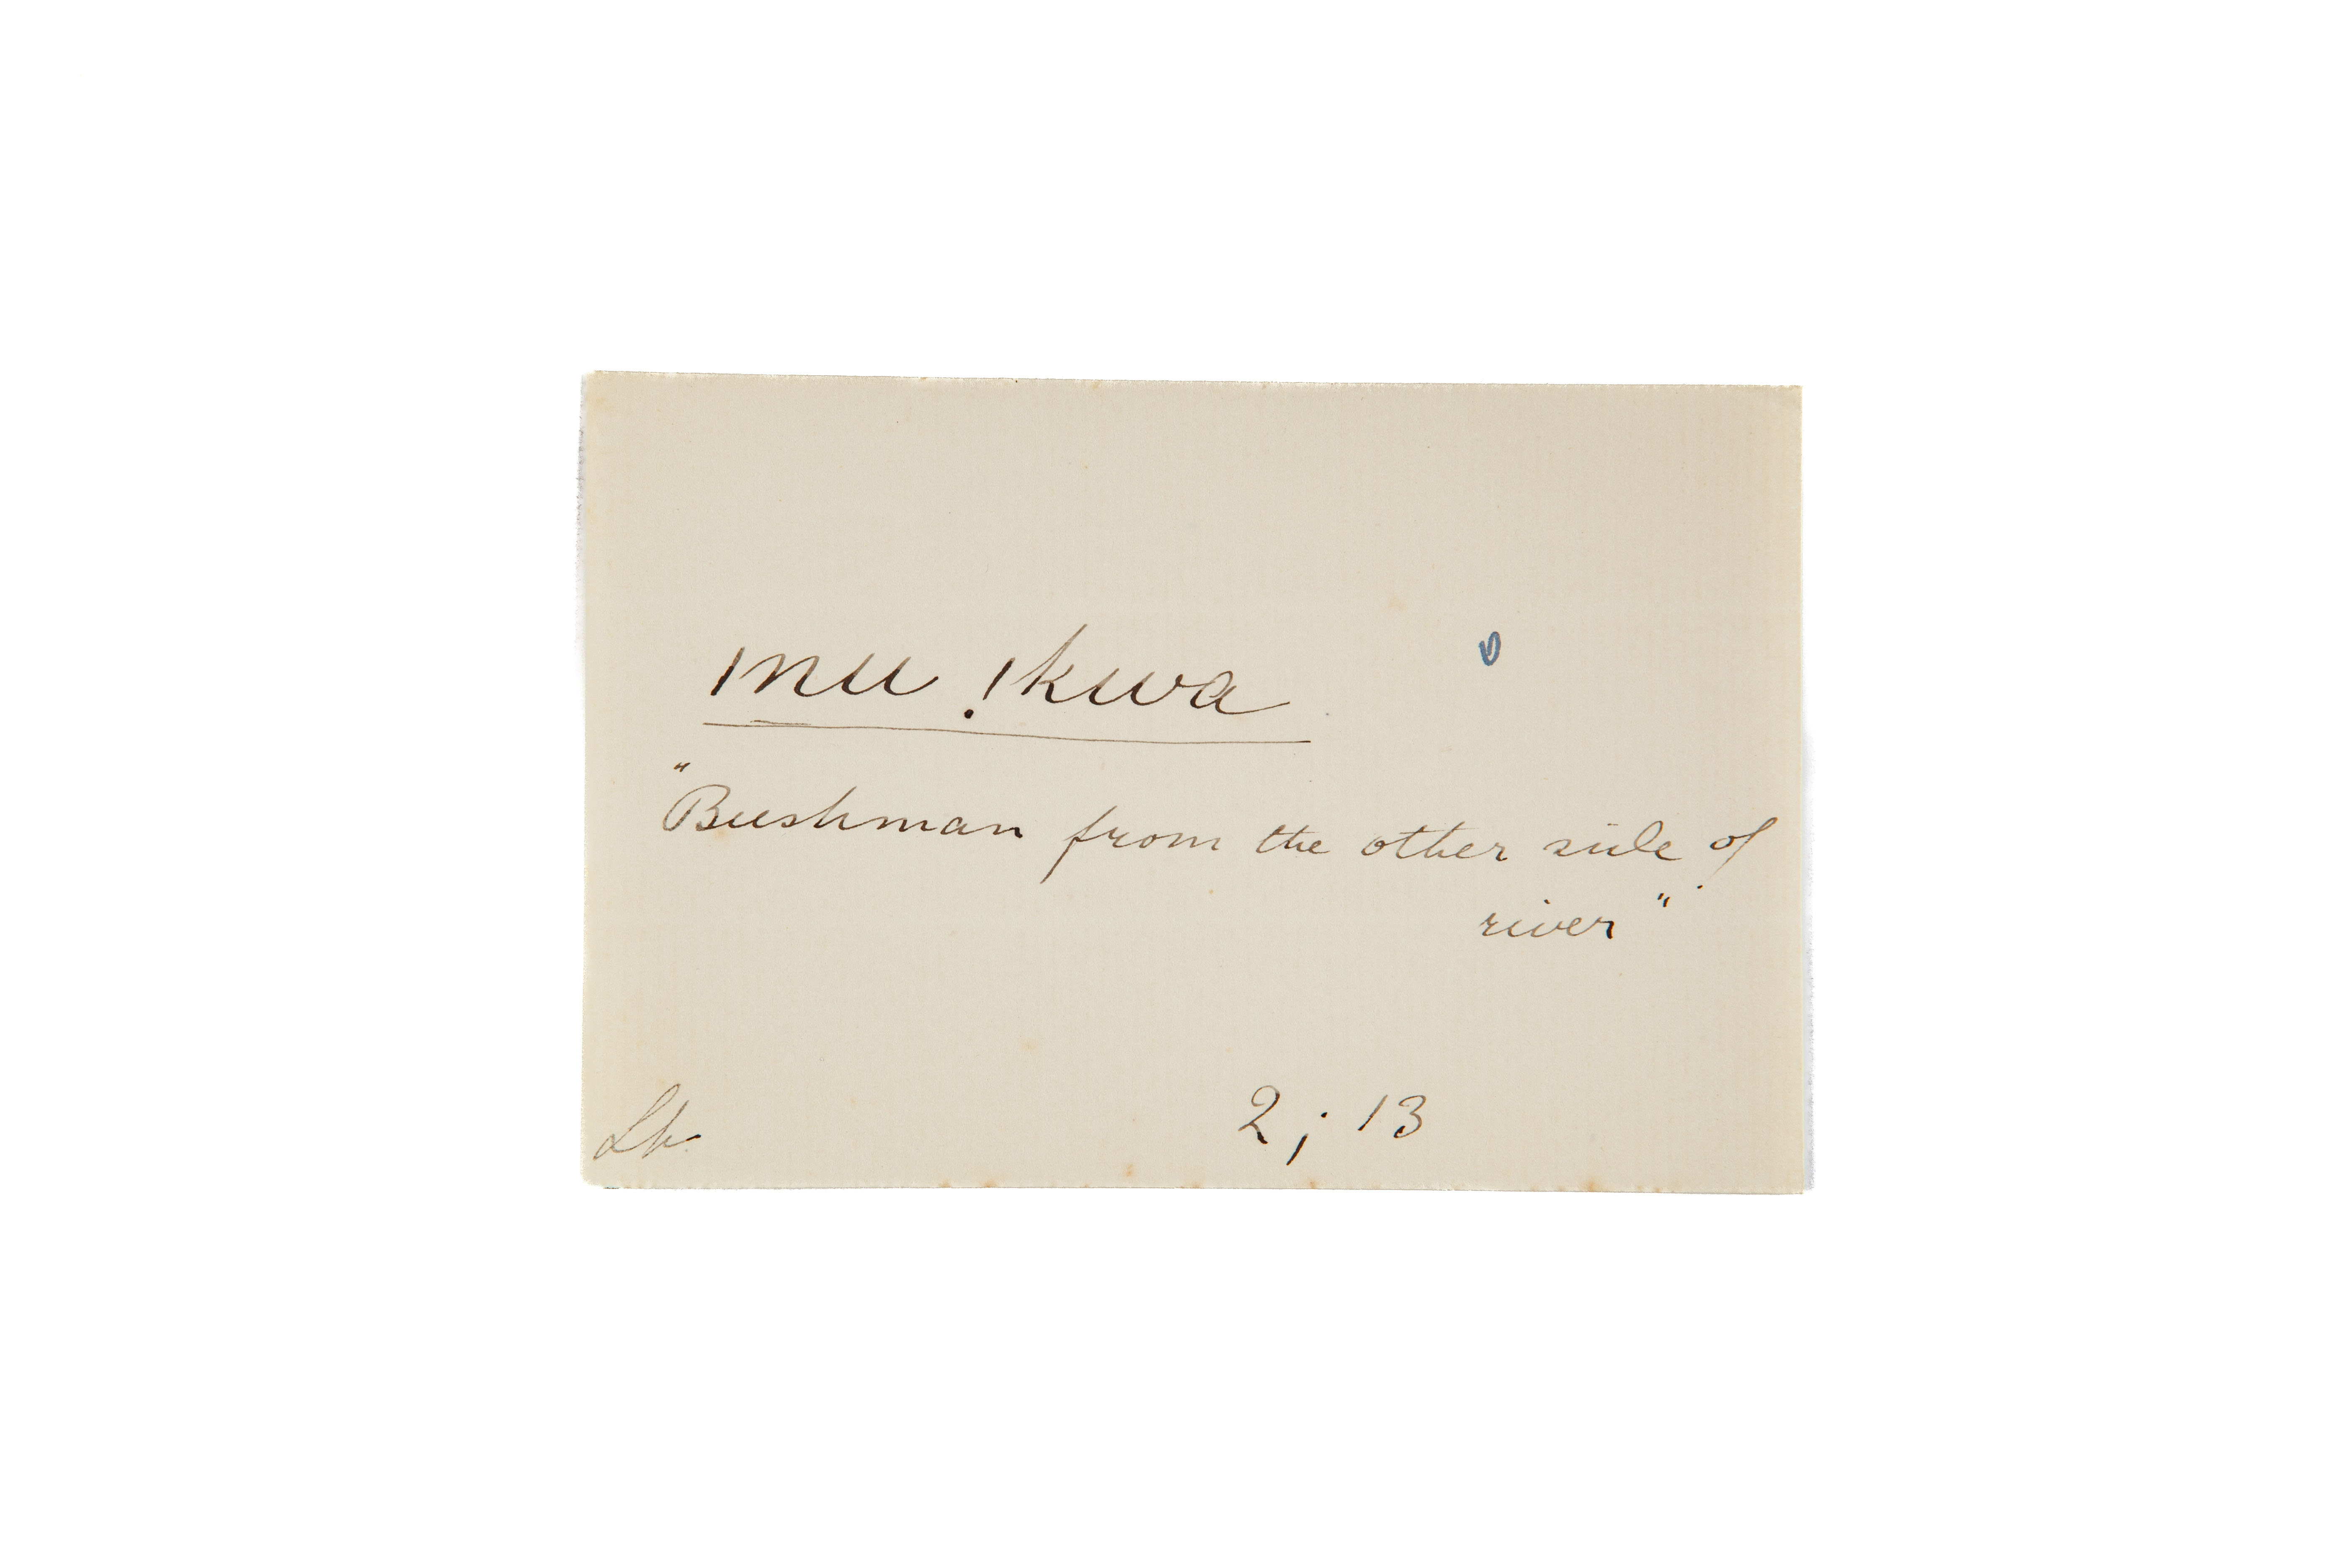 ǀnu ǃkwa
"Bushman from the other side of
river"
2; 13